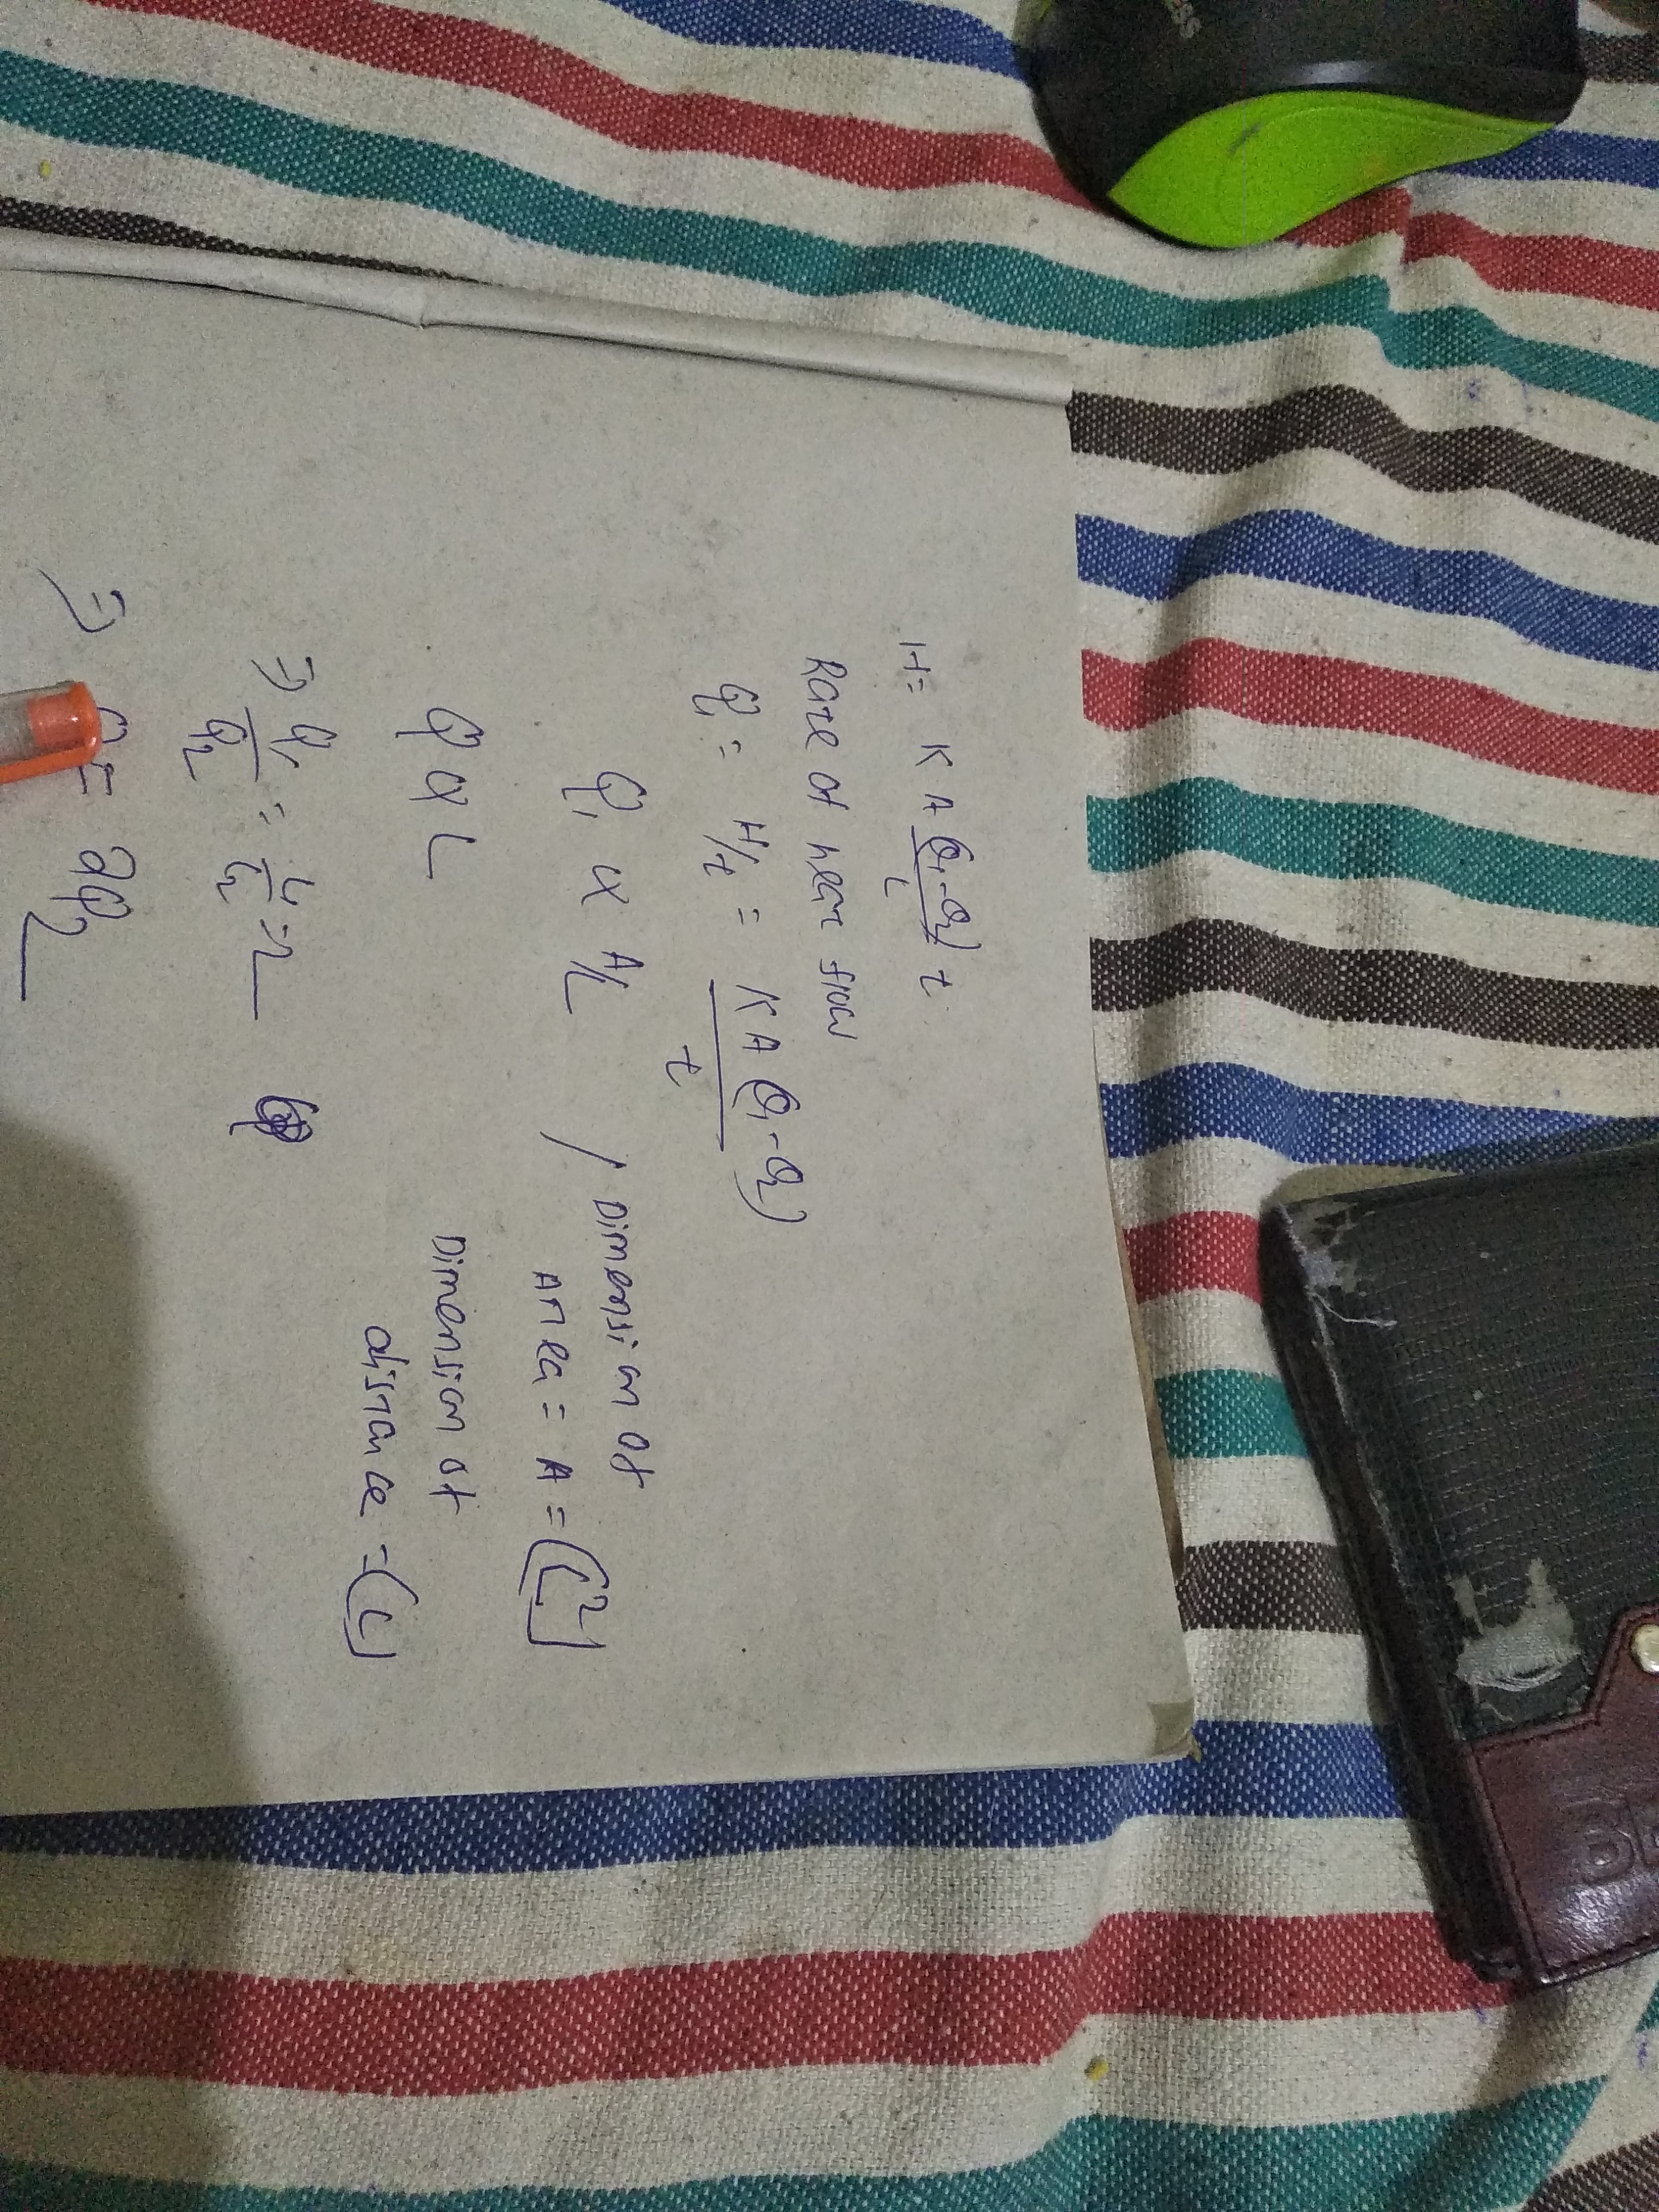 H = K A (θ₁-θ₂)/L t
Rate of heat flow
Q₁ = H/t = K A (θ₁-θ₂)/t
Q₁ α A/L / Dimension of
Area = A = [L²]
Q α L
Dimension of
distance - [L]
⇒ Q₁/Q₂ = L₁/L₂ = 2
⇒ = 2Q₂